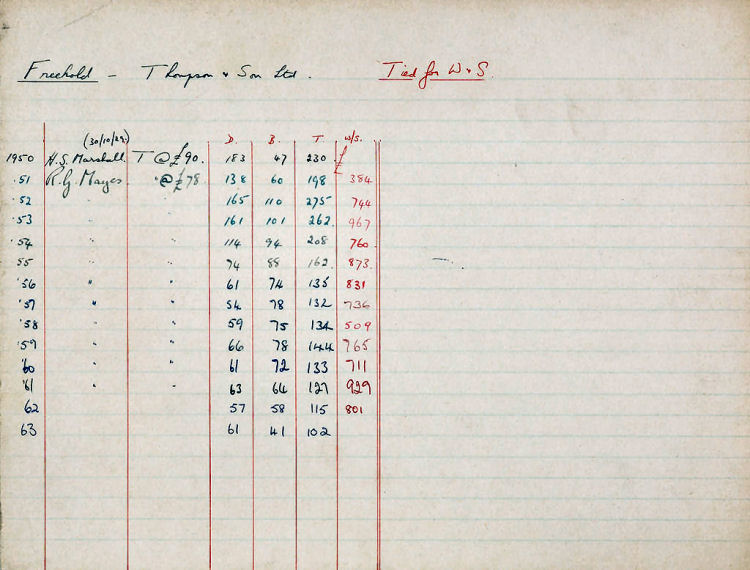 Freehold - Thompson & Son Ltd. Tied for W & S.
(30/10/29) D. B. T W/S.
1950 H.S. Marshall. T @ £90. 183 47 230 £
51 R.G. Mayes. " @ £78 138 60 198 384
'52 " " 165 110 275 744
'53 " " 161 101 262 967
'54 " " 114 94 208 760
55 " " 74 88 162 873
'56 " " 61 74 135 831
'57 " " 54 78 132 736
'58 " " 59 75 134 509
'59 " " 66 78 144 765
'60 " " 61 72 133 711
'61 " " 63 64 127 929
62 57 58 115 801
63 61 41 102